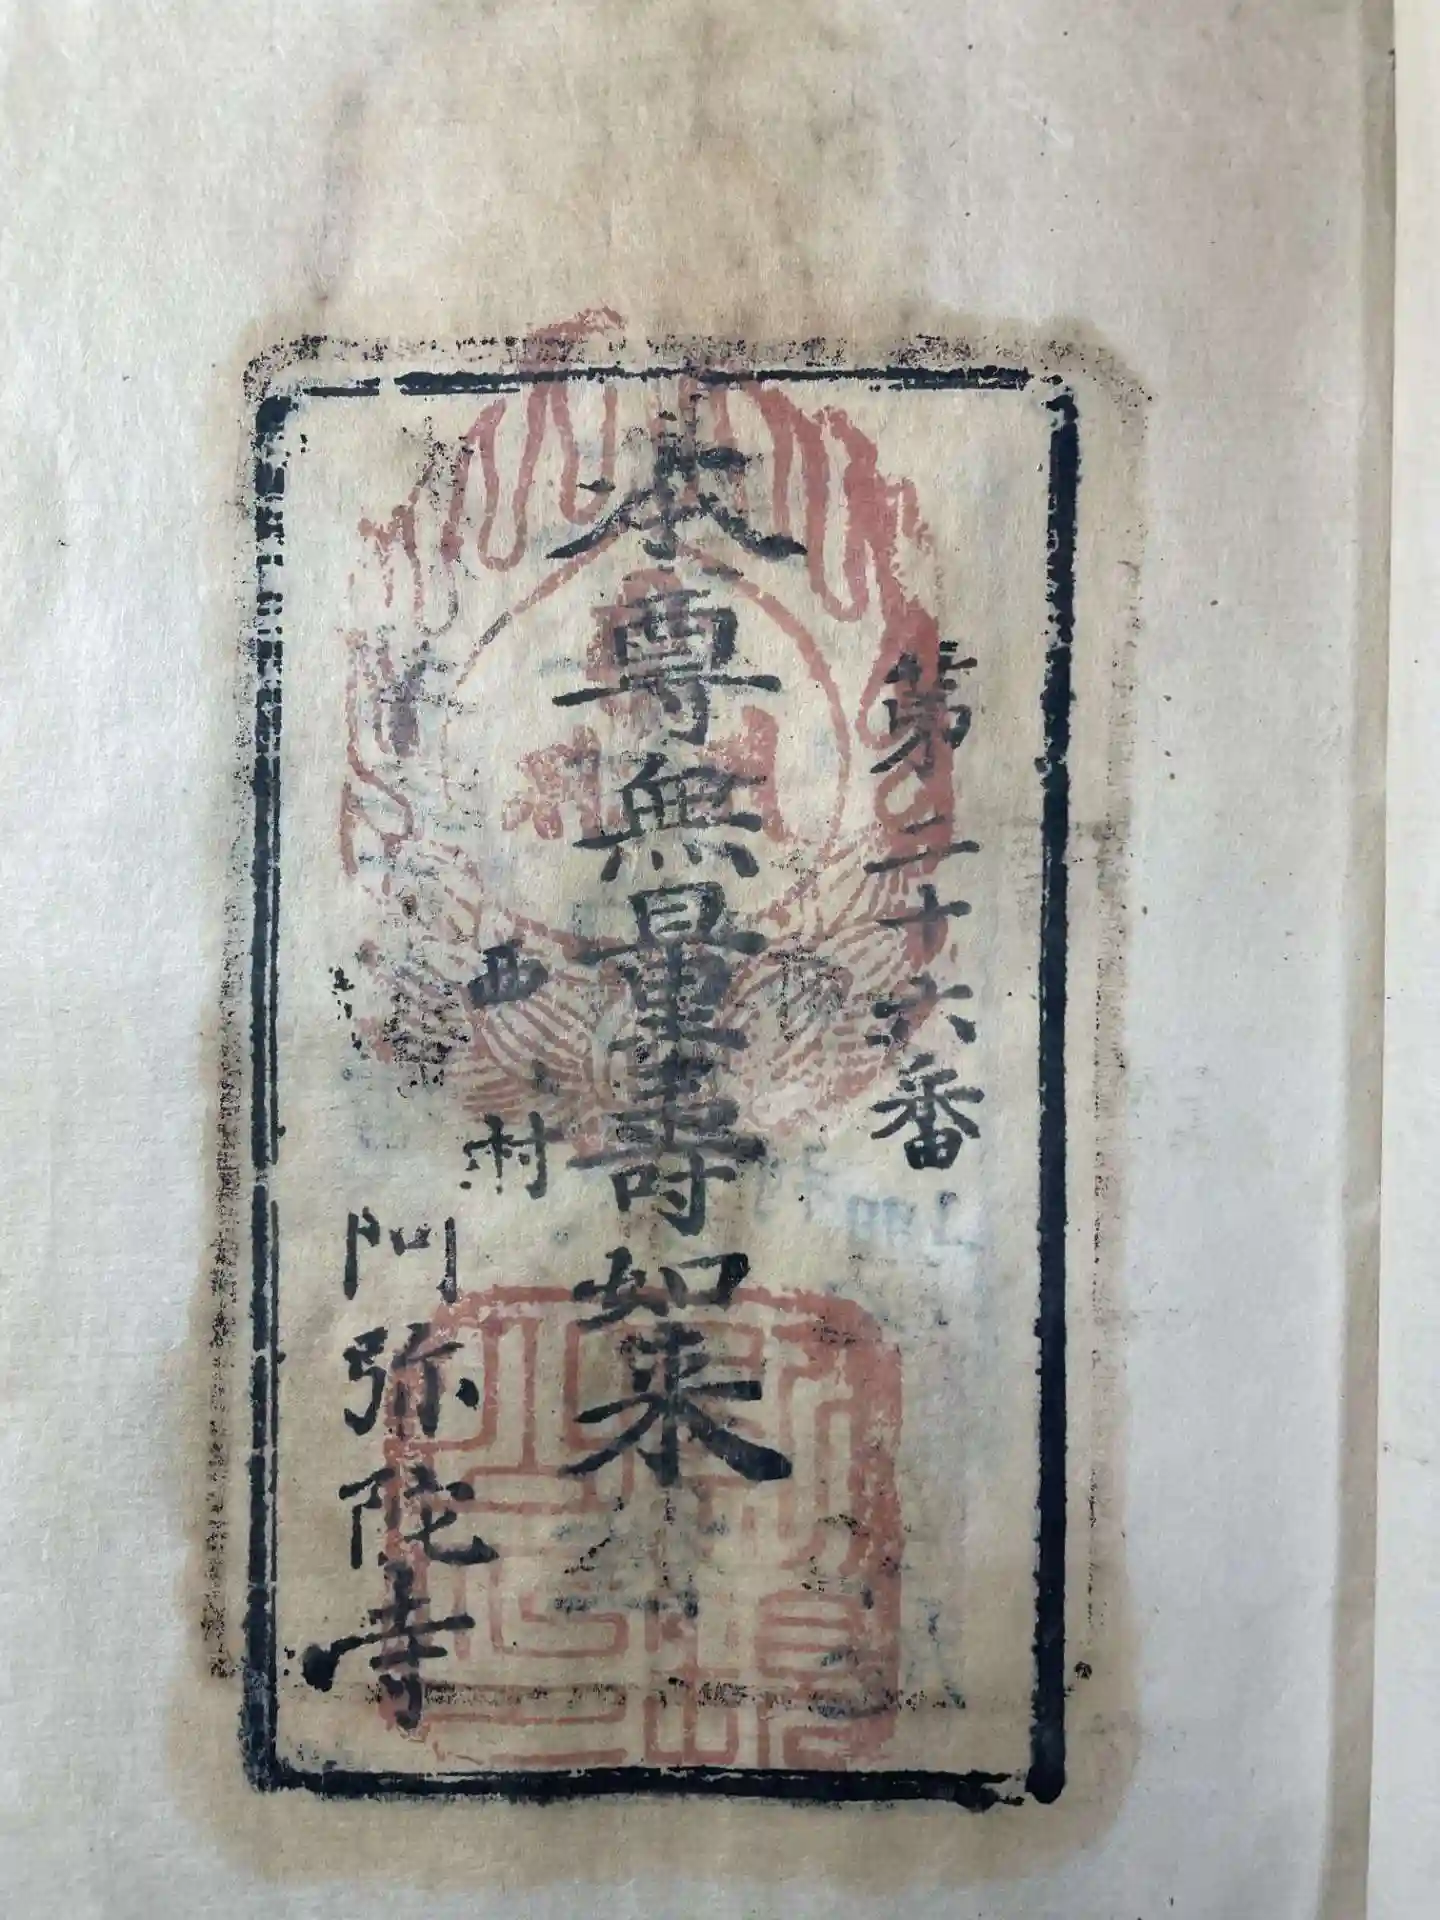 第二十六番
本尊無量壽如来
西村
阿弥陀寺